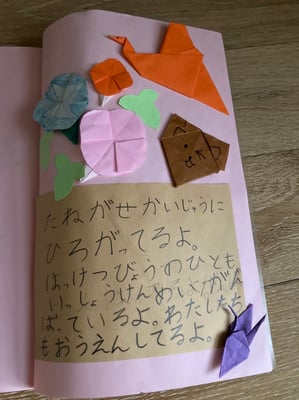 たねがせかいじゅうに
ひろがってるよ。
はっけつびょうのひとも
いっしょうけんめいがん
ばっているよ。わたしたち
もおうえんしてるよ。